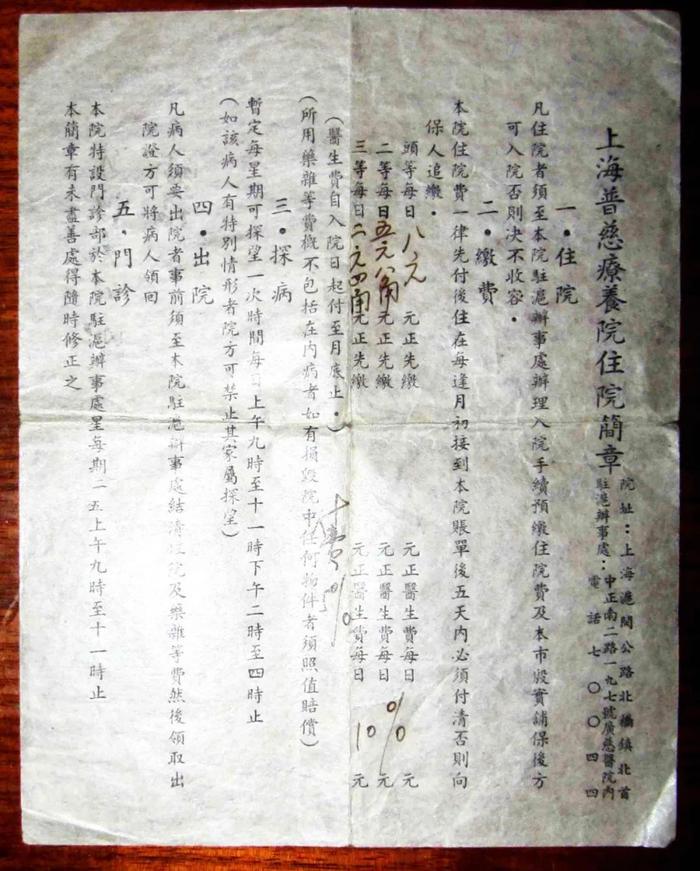 上海普慈療養院住院簡章
院址：上海滬閔公路北橋鎮北首
駐滬辦事處：中正南二路一九七號廣慈醫院內
電話七〇〇四四
一・住院
凡住院者須至本院駐滬辦事處辦理入院手續預繳住院費及本市殷實舖保後方
可入院否則決不收容・
二・繳費
本院住院費一律先付後住在每逢月初接到本院賬單後五天內必須付清否則向
保人追繳・
頭等每日八元 元正先繳 元正醫生費每日 元
二等每日五元八角元正先繳 元正醫生費每日 % 元
三等每日二元四角元正先繳 元正醫生費每日 10 元
(醫生費自入院日起付至月底止・)
(所用藥雜等費概不包括在內病者如有損毀院中任何物件者須照值賠償)
三・探病
暫定每星期可探望一次時間每日上午九時至十一時下午二時至四時止
(如該病人有特別情形者院方可禁止其家屬探望)
四・出院
凡病人須要出院者事前須至本院駐滬辦事處結清住院及藥雜等費然後領取出
院證方可將病人領回
五・門診
本院特設門診部於本院駐滬辦事處星每期二五上午九時至十一時止
本簡章有未盡善處得隨時修正之